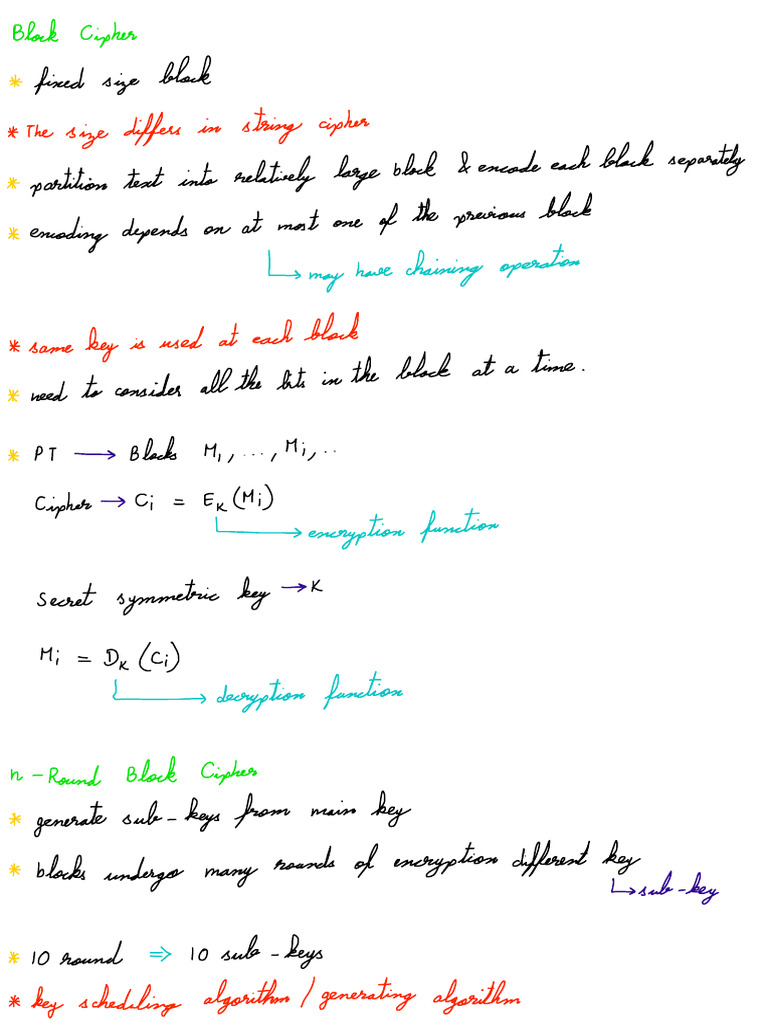 Block Cipher
* fixed size block
* The size differs in string cipher
* partition text into relatively large block & encode each block separately
* encoding depends on at most one of the previous block
↳ may have chaining operation
* same key is used at each block
* need to consider all the bits in the block at a time.
* PT → Blocks M₁, ..., Mᵢ, ..
Cipher → Cᵢ = E_K (Mᵢ)
↳ encryption function
Secret symmetric key → K
Mᵢ = D_K (Cᵢ)
↳ decryption function
n - Round Block Cipher
* generate sub-keys from main key
* blocks undergo many rounds of encryption different key
↳ sub-key
* 10 round ⇒ 10 sub-keys
* key scheduling algorithm / generating algorithm